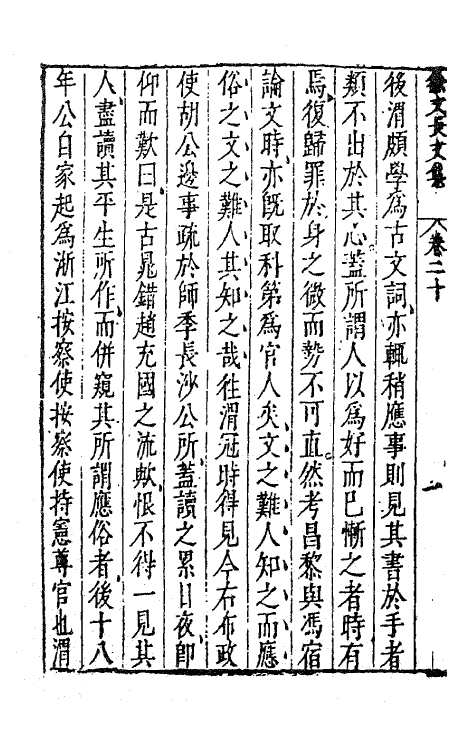 徐文長文集
卷二十
一
後渭頗學為古文詞亦輒稍應事則見其書於手者
類不出於其心蓋所謂人以為好而已慚之者時有
焉復歸罪於身之微而勢不可直然考昌黎與馮宿
論文時亦既取科第為官人矣文之難人知之而應
俗之文之難人其知之哉往渭冠時得見今右布政
使胡公邊事疏於師季長沙公所蓋讀之累日夜即
仰而歎曰是古晁錯趙充國之流歟恨不得一見其
人盡讀其平生所作而併窺其所謂應俗者後十八
年公自家起為浙江按察使按察使持憲尊官也渭